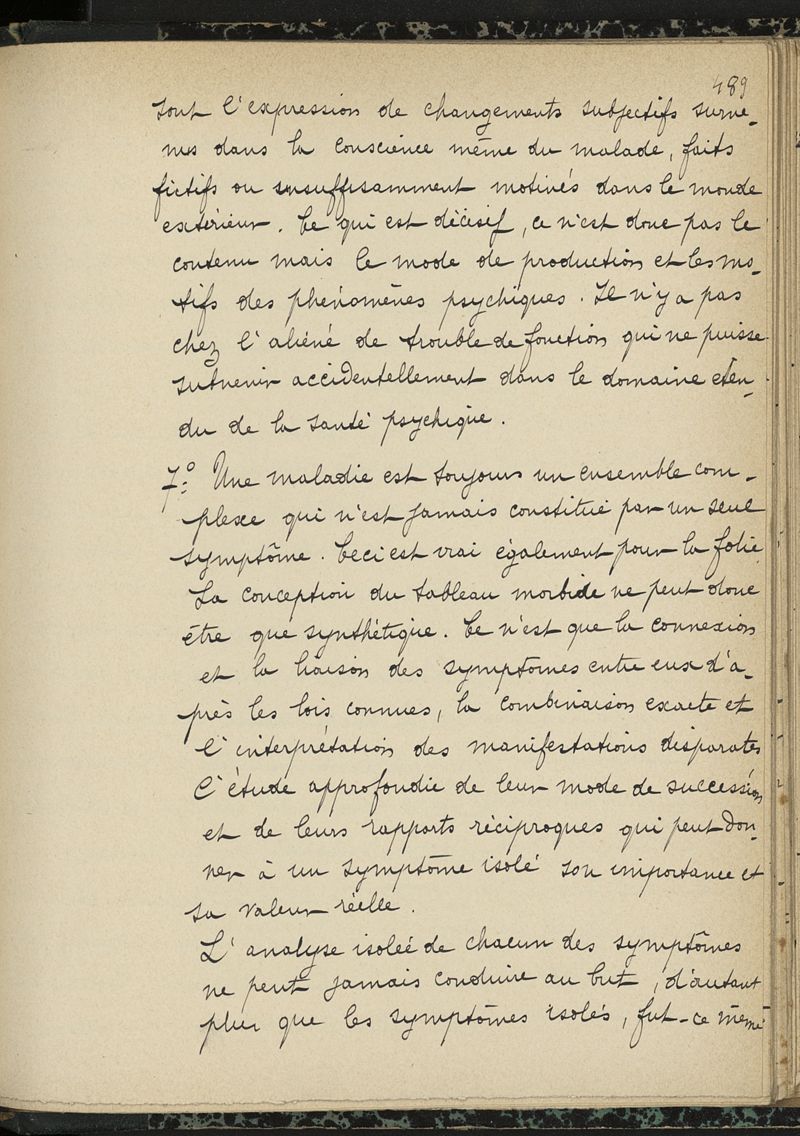 489
sont l'expression de changements subjectifs surve-
nus dans la conscience même du malade, faits
fictifs ou insuffisamment motivés dans le monde
extérieur. Ce qui est décisif, ce n'est donc pas le
contenu mais le mode de production et les mo-
tifs des phénomènes psychiques. Il n'y a pas
chez l'aliéné de trouble de fonction qui ne puisse
survenir accidentellement dans le domaine éten-
du de la santé psychique.
7º: Une maladie est toujours un ensemble com-
plexe qui n'est jamais constitué par un seul
symptôme. Ceci est vrai également pour la folie.
La conception du tableau morbide ne peut donc
être que synthétique. Ce n'est que la connexion
et la liaison des symptômes entre eux d'a-
près les lois connues, la combinaison exacte et
l'interprétation des manifestations disparates
l'étude approfondie de leur mode de succession
et de leurs rapports réciproques qui peut don-
ner à un symptôme isolé son importance et
sa valeur réelle.
L'analyse isolée de chacun des symptômes
ne peut jamais conduire au but, d'autant
plus que les symptômes isolés, fut-ce même